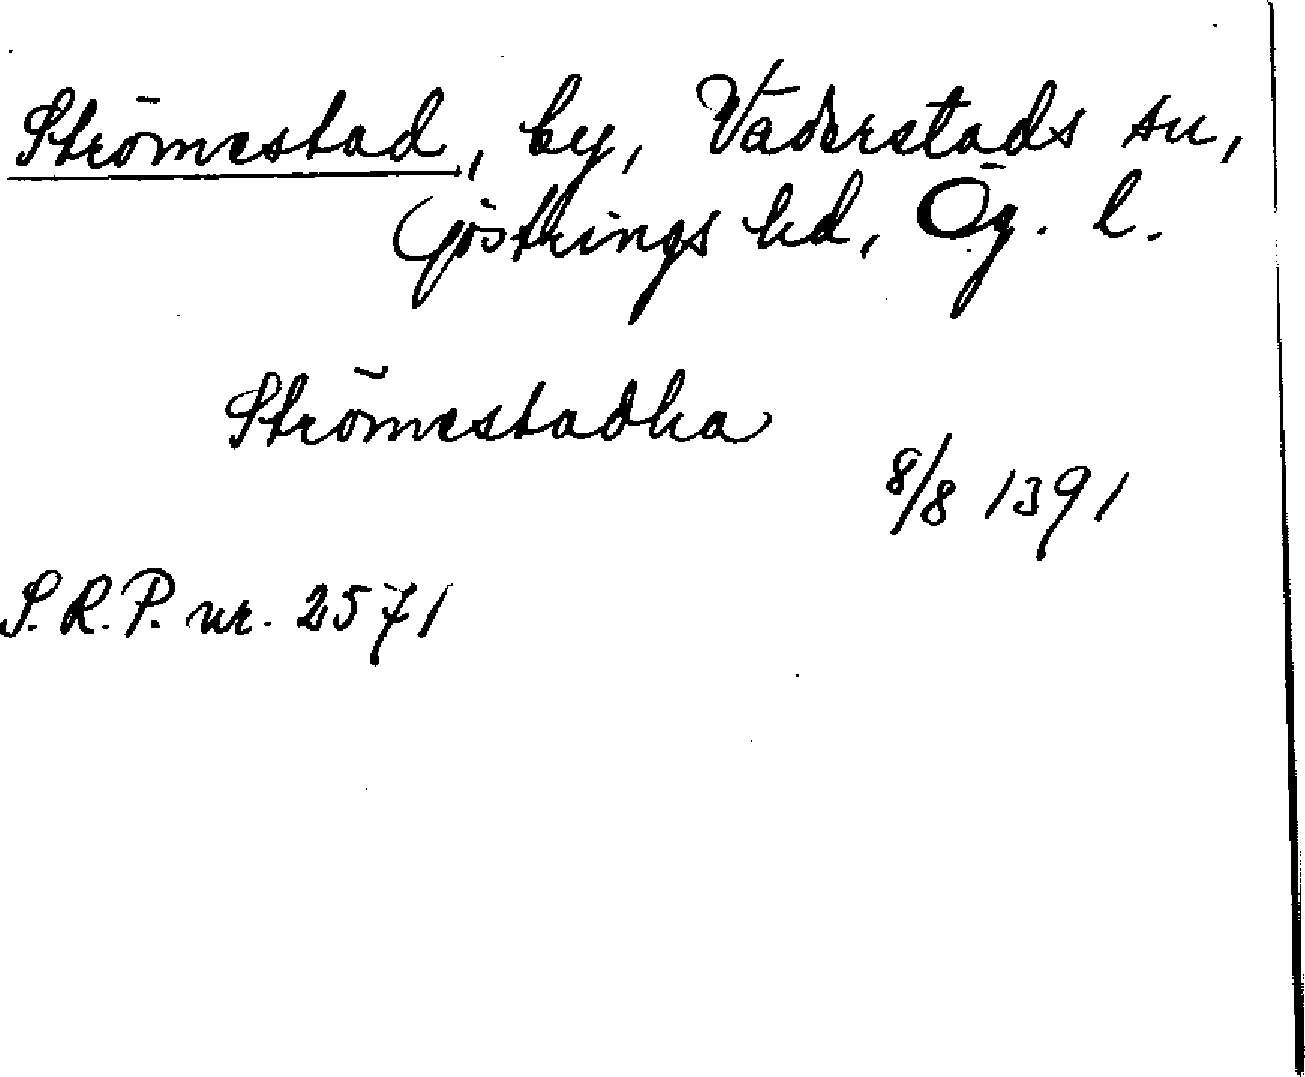 Strömestad, by, Väderstads sn,
Göstrings hd, Ög. l.
Strömestadha
8/8 1391
S.R.P. nr. 2571